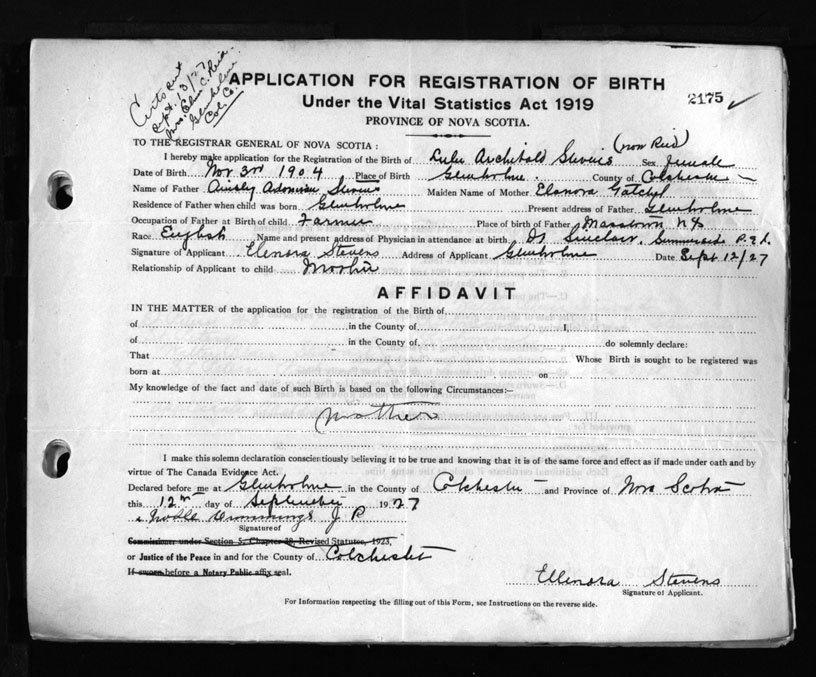 Cert sent
Sept. 13/27
Mrs. Glenholme
Col. Co.
APPLICATION FOR REGISTRATION OF BIRTH
Under the Vital Statistics Act 1919
2175
PROVINCE OF NOVA SCOTIA.
TO THE REGISTRAR GENERAL OF NOVA SCOTIA:
(now Reid)
I hereby make application for the Registration of the Birth of Lulu Archibald Stevens Sex Female
Date of Birth Nov 3rd 1904 Place of Birth Glenholme. County of Colchester
Name of Father Stevens Maiden Name of Mother Elanora
Residence of Father when child was born Glenholme Present address of Father Glenholme
Occupation of Father at Birth of child Farmer Place of birth of Father Masstown NS
Race English Name and present address of Physician in attendance at birth Dr Sinclair, Summerside P.E.I.
Signature of Applicant Elenora Stevens Address of Applicant Glenholme Date Sept 12/27
Relationship of Applicant to child Mother
AFFIDAVIT
IN THE MATTER of the application for the registration of the Birth of
of in the County of I,
of in the County of do solemnly declare:
That Whose Birth is sought to be registered was
born at on
My knowledge of the fact and date of such Birth is based on the following Circumstances:—
Mother
I make this solemn declaration conscientiously believing it to be true and knowing that it is of the same force and effect as if made under oath and by
virtue of The Canada Evidence Act.
Declared before me at Glenholme in the County of Colchester and Province of Nova Scotia
this 12th day of September 1927
Noble Cummings J P
Signature of
Commissioner under Section 5, Chapter 38, Revised Statutes, 1923,
or Justice of the Peace in and for the County of Colchester
If sworn before a Notary Public affix seal.
Ellenora Stevens
Signature of Applicant.
For Information respecting the filling out of this Form, see Instructions on the reverse side.